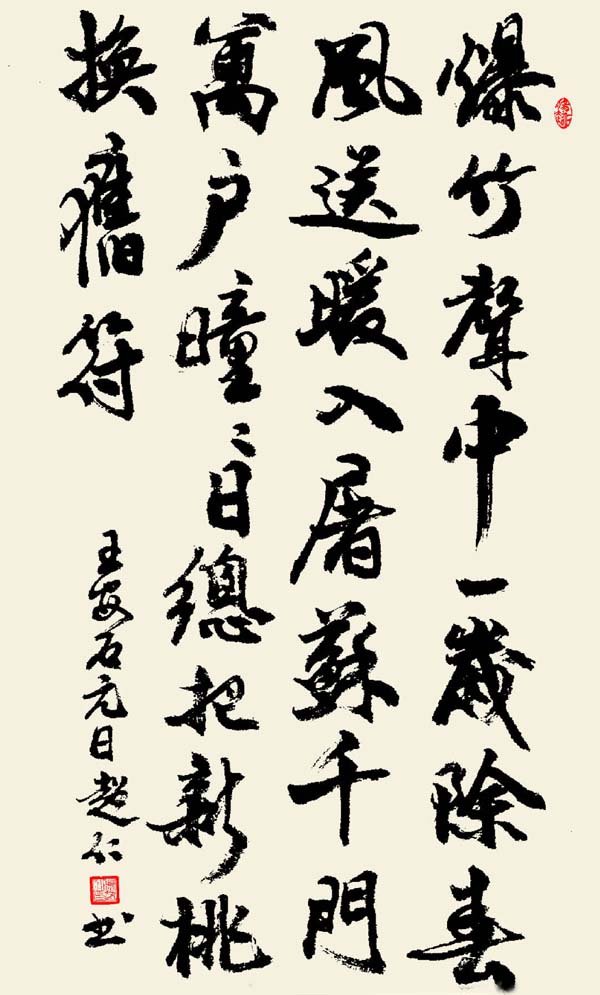 爆竹聲中一歲除春
風送暖入屠蘇千門
萬户曈〻日總把新桃
換舊符
王安石元日超仁書